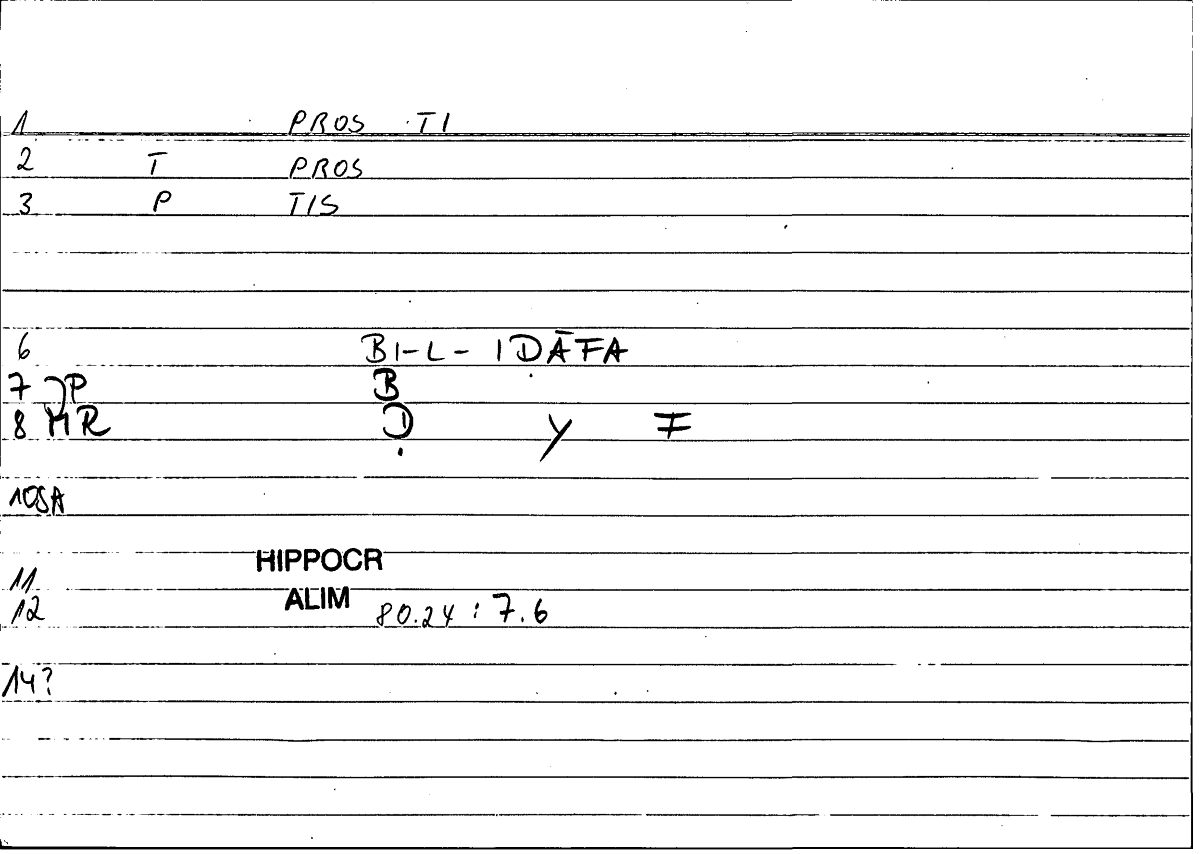 1 PROS TI
2 T PROS
3 P TIS
6 BI-L-IDĀFA
7 JP B
8 MR Ḍ Y F
10SA
11 HIPPOCR
12 ALIM 80.24 : 7.6
14?